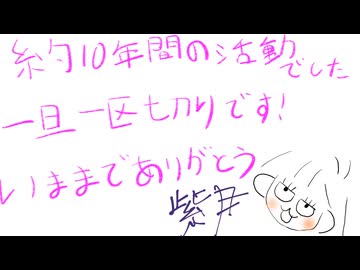 約10年間の活動でした
一旦一区切りです!
いままでありがとう
紫井